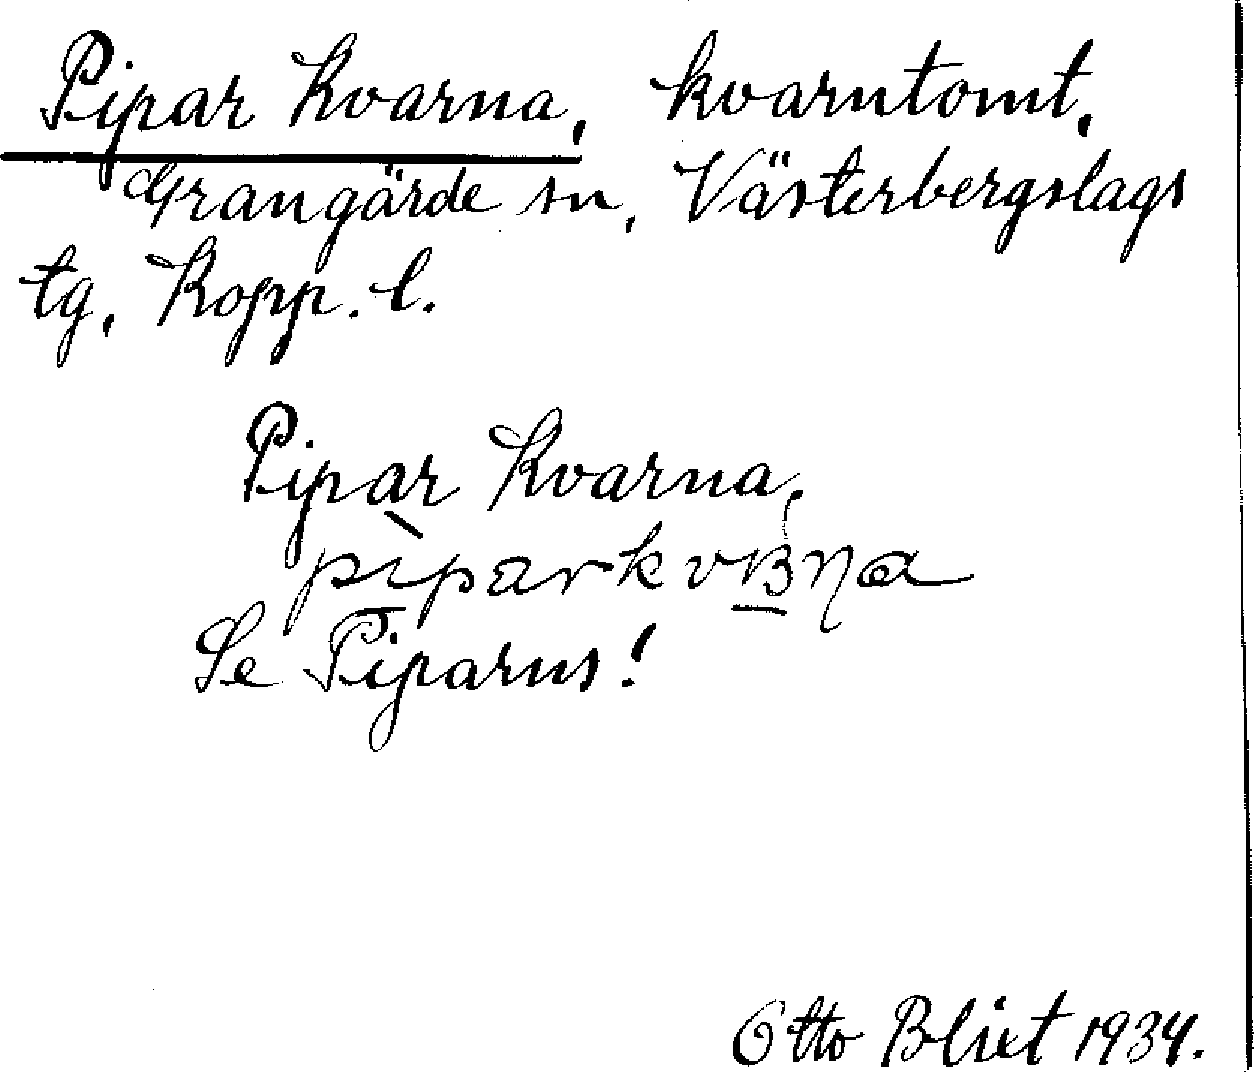 Pipar Kvarna, kvarntomt,
Grangärde sn, Västerbergslags
tg, Kopp. l.
Pipar Kvarna,
Se Piparns!
Otto Blixt 1934.